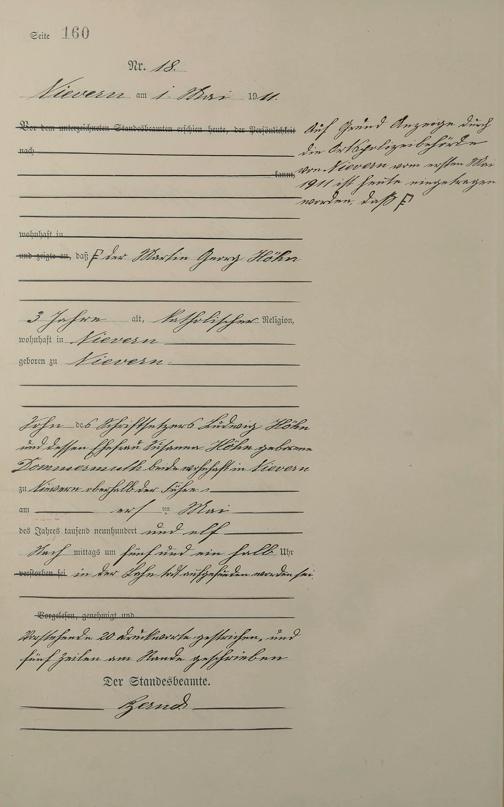 Seite 160
Nr. 18.
Nievern am 1 Mai 1911.
Vor dem unterzeichneten Standesbeamten erschien heute, der Persönlichkeit
nach
kannt,
Auf Grund Anzeige durch
die Ortspolizeibehörde
von Nievern vom ersten Mai
1911 ist heute eingetragen
worden, daß F
wohnhaft in
und zeigte an, daß F der Martin Georg Höhn
3 Jahre alt, katholischer Religion,
wohnhaft in Nievern
geboren zu Nievern
Sohn des Schriftsetzers Ludwig Höhn
und dessen Ehefrau Susanna Höhn geborene
Dommermuth beide wohnhaft in Nievern
zu Nievern oberhalb der
am ersten Mai
des Jahres tausend neunhundert und elf
Nach mittags um fünf und ein halb Uhr
verstorben sei in der Lahn tot aufgefunden worden sei
Vorgelesen, genehmigt und
Vorstehende 20 Druckworte gestrichen, und
fünf Zeilen am Rande geschrieben
Der Standesbeamte.